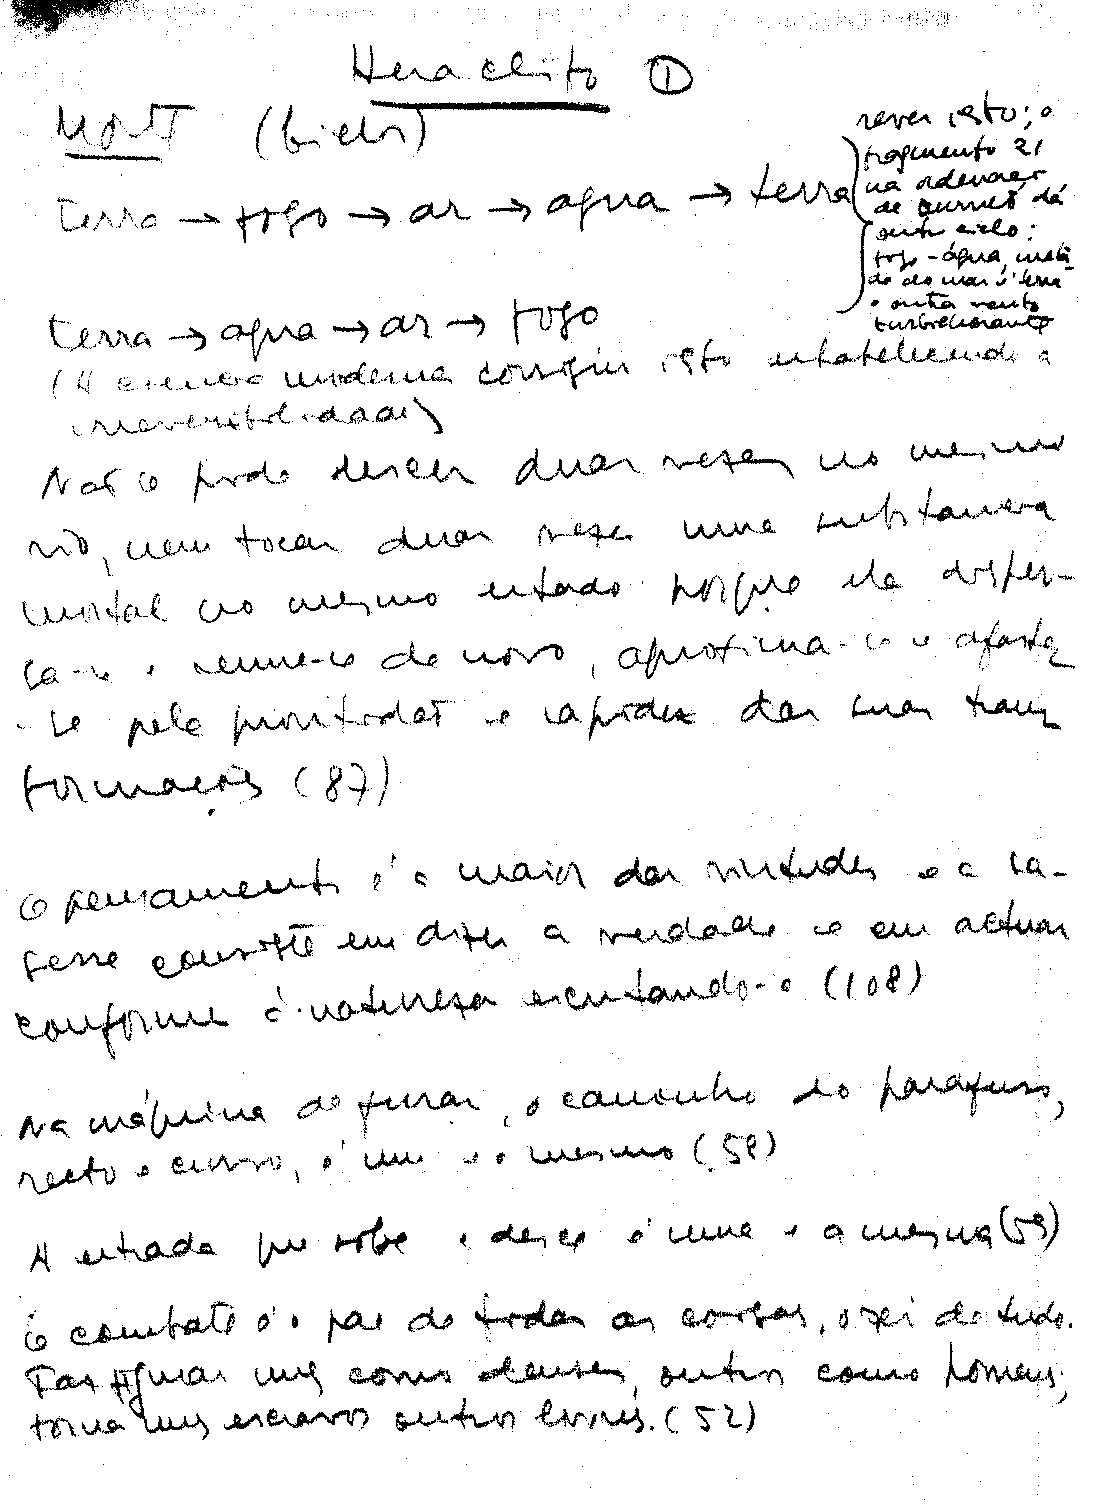 Heraclito ①
Morte (ciclos)
terra → fogo → ar → agua → terra
rever isto; o
fragmento 21
na ordenação
de Burnet dá
outro ciclo:
fogo - água, meta-
de do mar é terra
e outra vento
turbilhonante
terra → agua → ar → fogo
(A ciencia moderna corrigiu isto estabelecendo a
irreversibilidade)
Não se pode descer duas vezes no mesmo
rio, nem tocar duas vezes uma substancia
mortal no mesmo estado porque ela disper-
sa-se e reune-se de novo, aproxima-se e afasta
-se pela prontidão e rapidez das suas trans
formações (87)
O pensamento é a maior das virtudes e a sa-
gesse consiste em dizer a verdade e em actuar
conforme à natureza escutando-a (108)
Na máquina de furar, o caminho do parafuso,
recto e curvo, é um e o mesmo (58)
A estrada que sobe e desce é uma e a mesma (59)
O combate é o pae de todas as coisas, o rei de tudo.
Faz figurar uns como deuses, outros como homens,
torna uns escravos outros livres. (52)